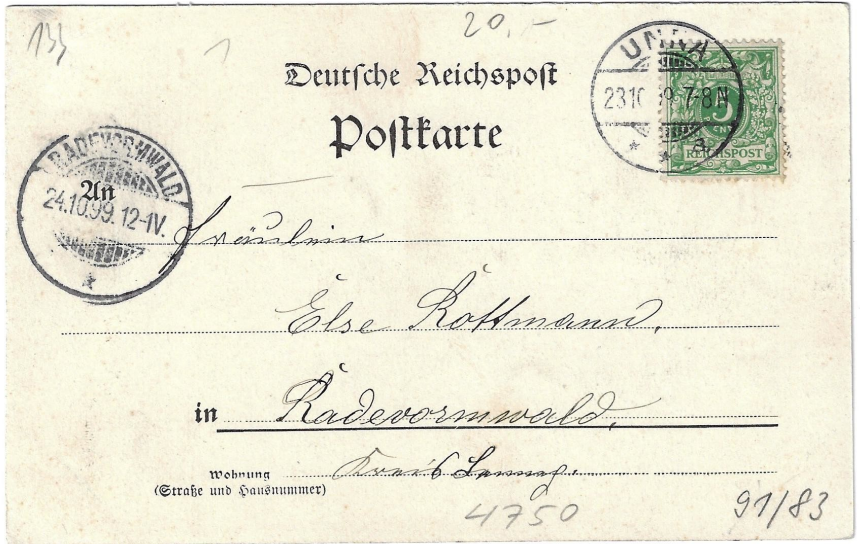 133
1
20,-
Deutsche Reichspost
Postkarte
UNNA
23 10 99 7-8 N
* * a
5
REICHSPOST
RADEVORMWALD
24.10.99. 12-1V.
*
An
Fräulein
Else Rottmann,
in Radevormwald,
Wohnung Kreis Lennep.
(Straße und Hausnummer)
4750
91/83